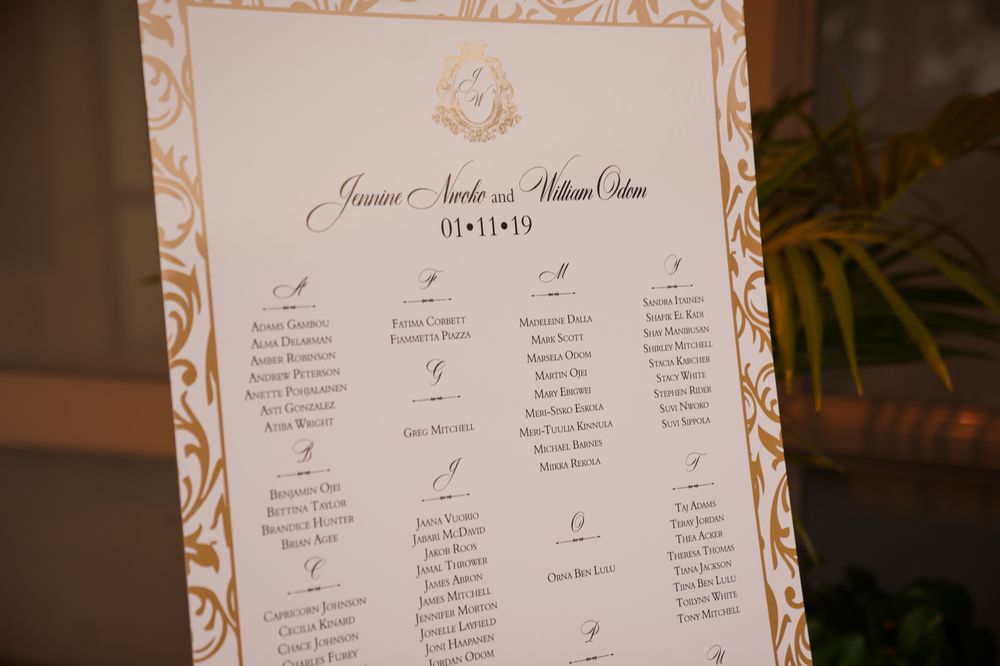 J
W
Jennine Nwoko and William Odom
01•11•19
A
ADAMS GAMBOU
ALMA DELARMAN
AMBER ROBINSON
ANDREW PETERSON
ANETTE POHJALAINEN
ASTI GONZALEZ
ATIBA WRIGHT
B
BENJAMIN OJEI
BETTINA TAYLOR
BRANDICE HUNTER
BRIAN AGEE
C
CAPRICORN JOHNSON
CECILIA KINARD
CHACE JOHNSON
CHARLES FUREY
F
FATIMA CORBETT
FIAMMETTA PIAZZA
G
GREG MITCHELL
J
JAANA VUORIO
JABARI MCDAVID
JAKOB ROOS
JAMAL THROWER
JAMES ABRON
JAMES MITCHELL
JENNIFER MORTON
JONELLE LAYFIELD
JONI HAAPANEN
JORDAN ODOM
M
MADELEINE DALLA
MARK SCOTT
MARSELA ODOM
MARTIN OJEI
MARY EBIGWEI
MERI-SISKO ESKOLA
MERI-TUULIA KINNULA
MICHAEL BARNES
MIIKKA REKOLA
O
ORNA BEN LULU
P
S
SANDRA ITAINEN
SHAFIK EL KADI
SHAY MANIBUSAN
SHIRLEY MITCHELL
STACIA KARCHER
STACY WHITE
STEPHEN RIDER
SUVI NWOKO
SUVI SIPPOLA
T
TAJ ADAMS
TERAY JORDAN
THEA ACKER
THERESA THOMAS
TIANA JACKSON
TIINA BEN LULU
TOILYNN WHITE
TONY MITCHELL
U